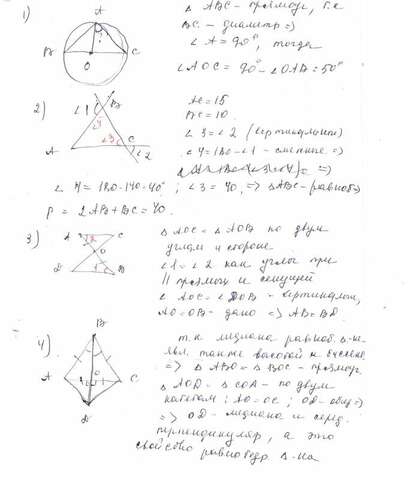 1)
A
B
C
O
Δ ABC - прямоуг, т.к
BC - диаметр =>
∠A = 90°, тогда
∠AOC = 90° - ∠OAB = 50°
2)
∠1
B
∠4
∠3
A
C
∠2
AC = 15
BC = 10
∠3 = ∠2 (вертикальные)
∠4 = 180 - ∠1 - смежные =>
=>
∠4 = 180 - 140 = 40° ; ∠3 = 40, => ΔABC - равноб =>
P = 2AB + BC = 40.
3)
A
C
2
O
D
1
B
Δ AOC = Δ AOB по двум
углам и стороне
∠1 = ∠2 как углы при
|| прямых и секущей
∠AOC = ∠DOB - вертикальн,
AO = OB - дано => AB = BD
4)
B
A
O
C
D
т.к медиана равноб. Δ-ка
явл. также высотой и биссек
=> Δ ABO = Δ BOC - прямоуг
Δ AOD = Δ COA - по двум
катетам ; AO = OC ; OD - общ =>
=> OD - медиана и серед.
перпендикуляр, а это
свойство равнобедр Δ-ка